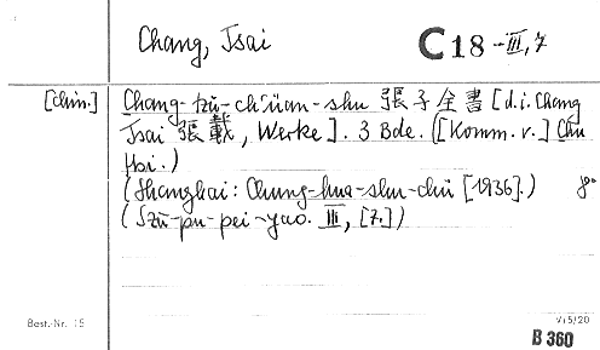 Chang, Tsai
C 18 - III, 7
[chin.]
Chang-tzŭ-ch'üan-shu 張子全書 [d.i. Chang
Tsai 張載, Werke]. 3 Bde. ([Komm. v.] Chu
Hsi.)
(Shanghai: Chung-hua-shu-chü [1936].) 8°
(Szŭ-pu-pei-yao. III, [7.])
Best.-Nr. 15
V/5/20
B 360